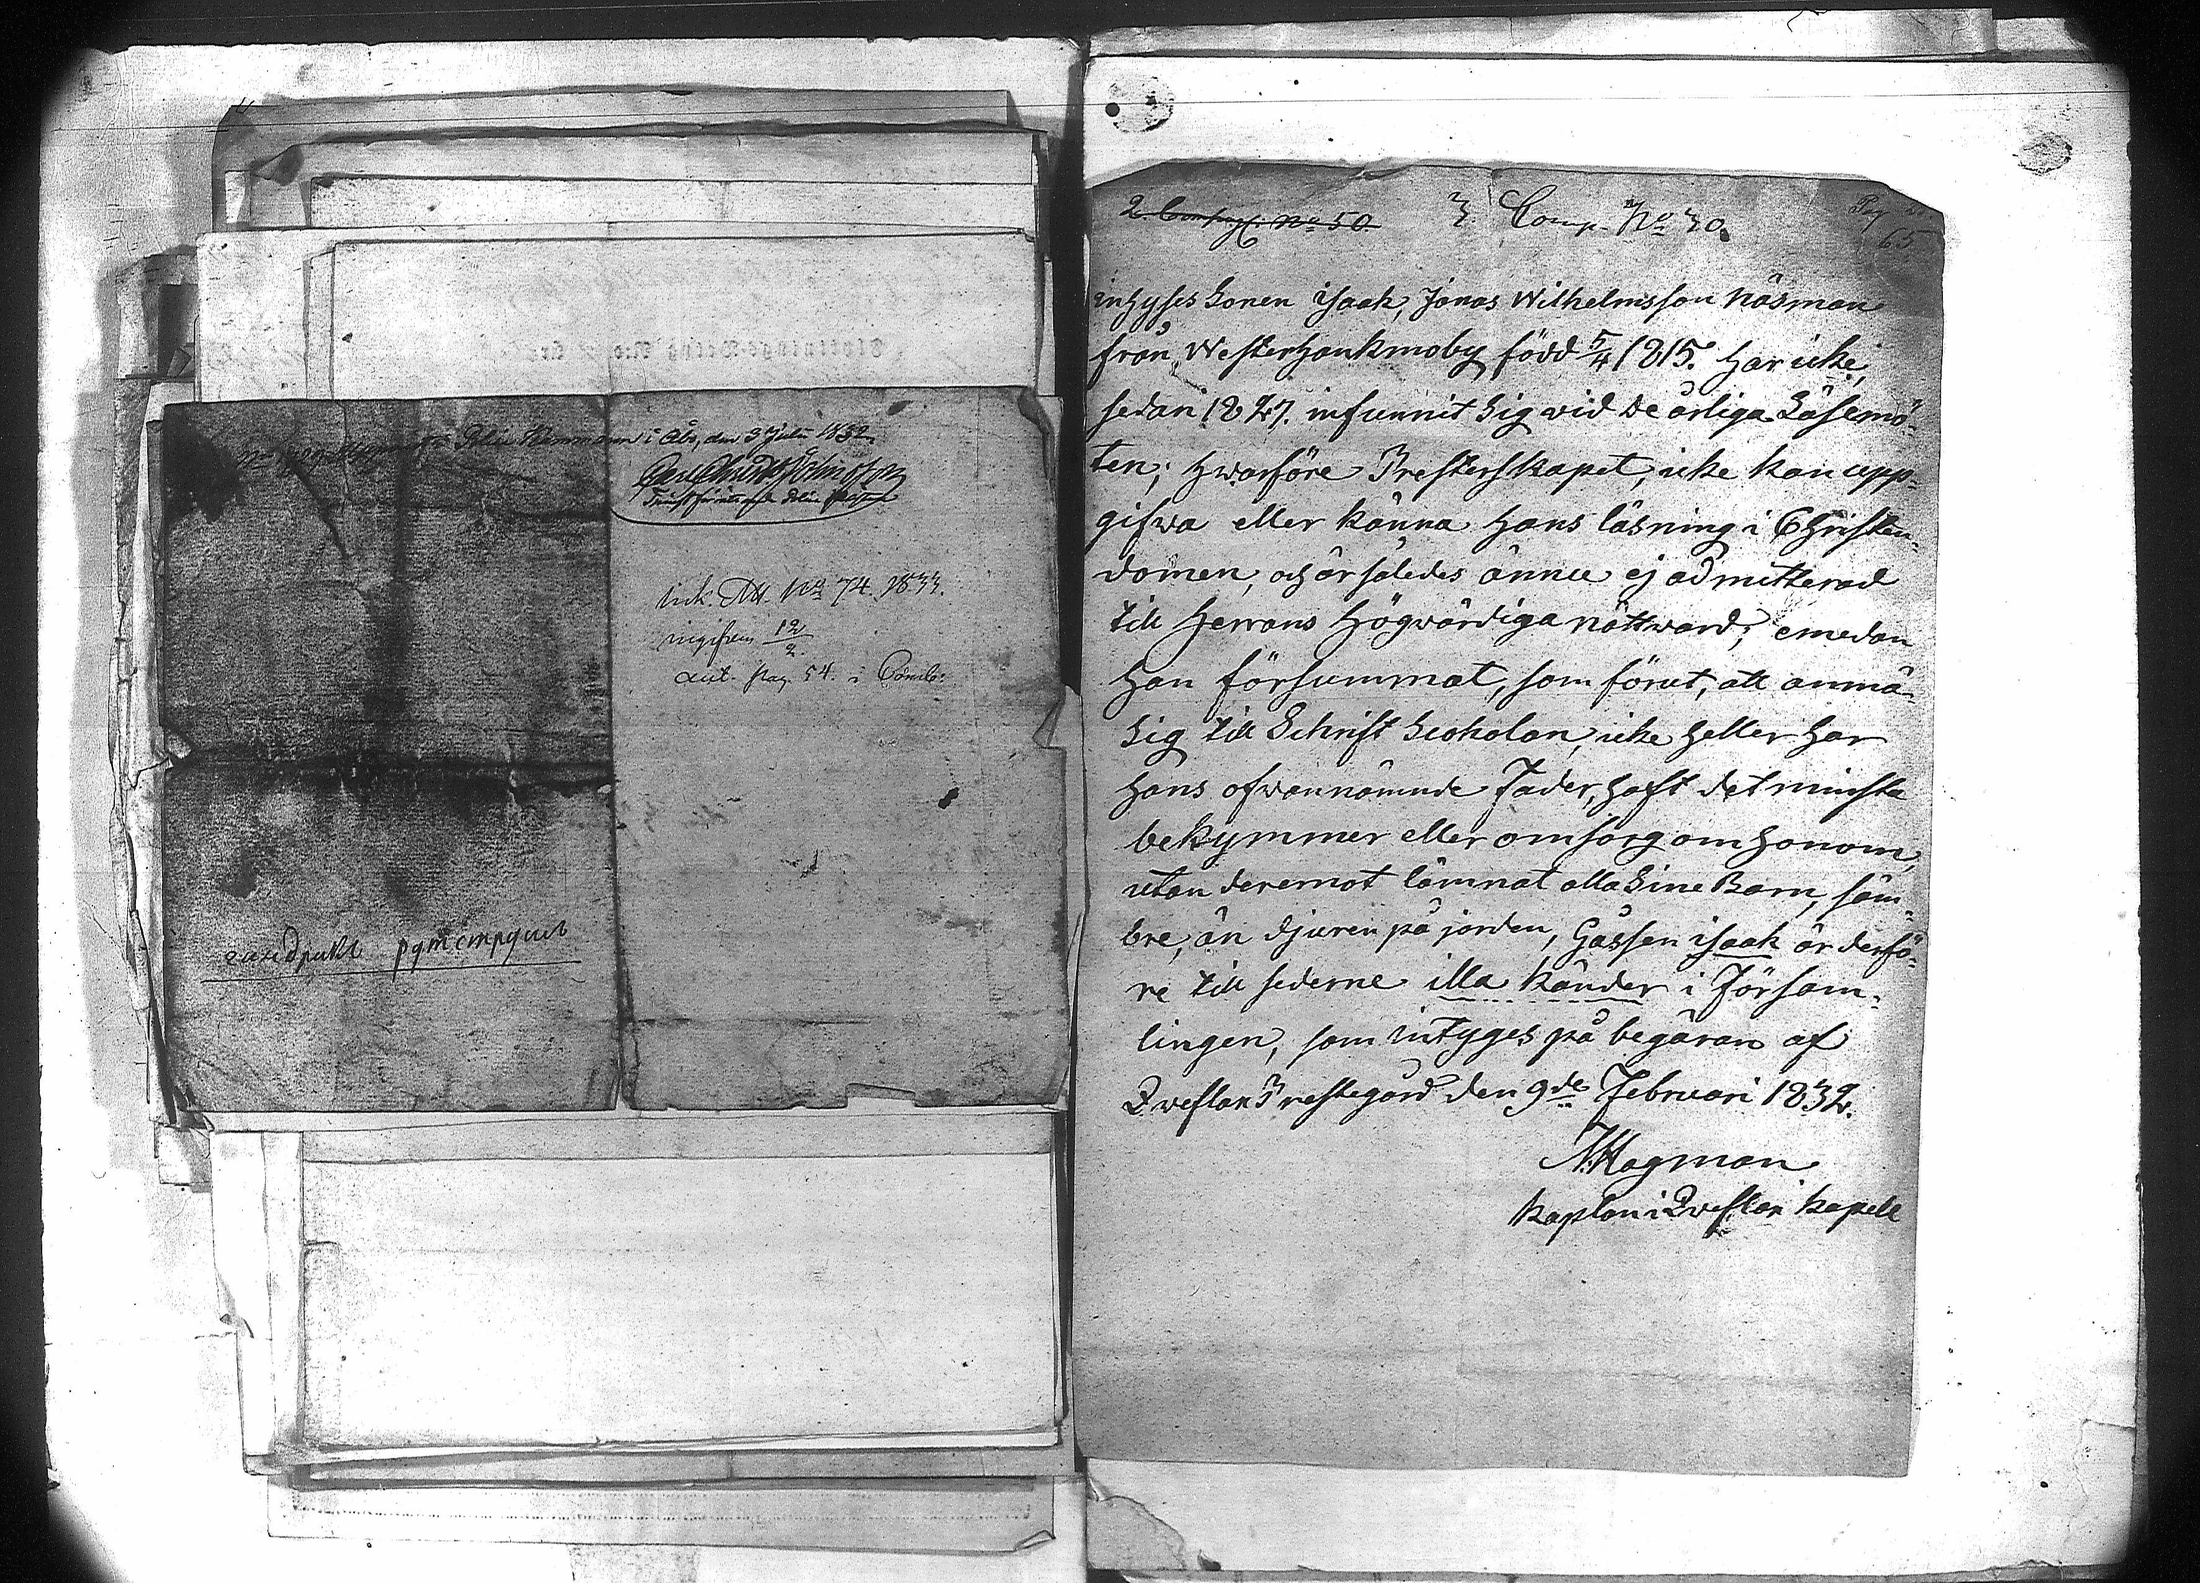 i Åbo, den 3 Juli 1832.
ink. Att. No 74. 1833.
ingifven 12/2.
ant. pag. 54. i
2 Comp. No 50
3 Comp. No 30.
Pag
65
inhyses Sonen isaak, Jonas Wilhelmsson Näsman
från Westerhankmoby född 5/4 1815. har icke,
sedan 1827. infunnit Sig wid de årliga Läsemö-
ten; hwarföre Presterskapet, icke kan upp-
gifwa eller känna hans läsning i Christen-
domen, och är således ännu ej admitterad
till Herrans Högwärdiga nattward; emedan
han försummat, som förut, att anmä-
Sig till Schrift Scholan, icke heller har
hans ofwannämnde Fader, haft det minsta
bekymmer eller omsorg om honom,
utan deremot lämnat alla Sine Barn, säm-
bre, än djuren på jorden, Gåssen isaak är derfö-
re till sederne illa känder i Försam-
lingen, som intyges på begäran af
Qveflax Prestegård den 9de Februari 1832.
N. Hagman
Kaplan i Qveflax Kapell